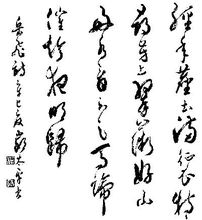 經年塵土滿征衣特特
尋芳上翠微好山
好水看不足馬蹄
催趁明歸
岳飛詩辛巳夏